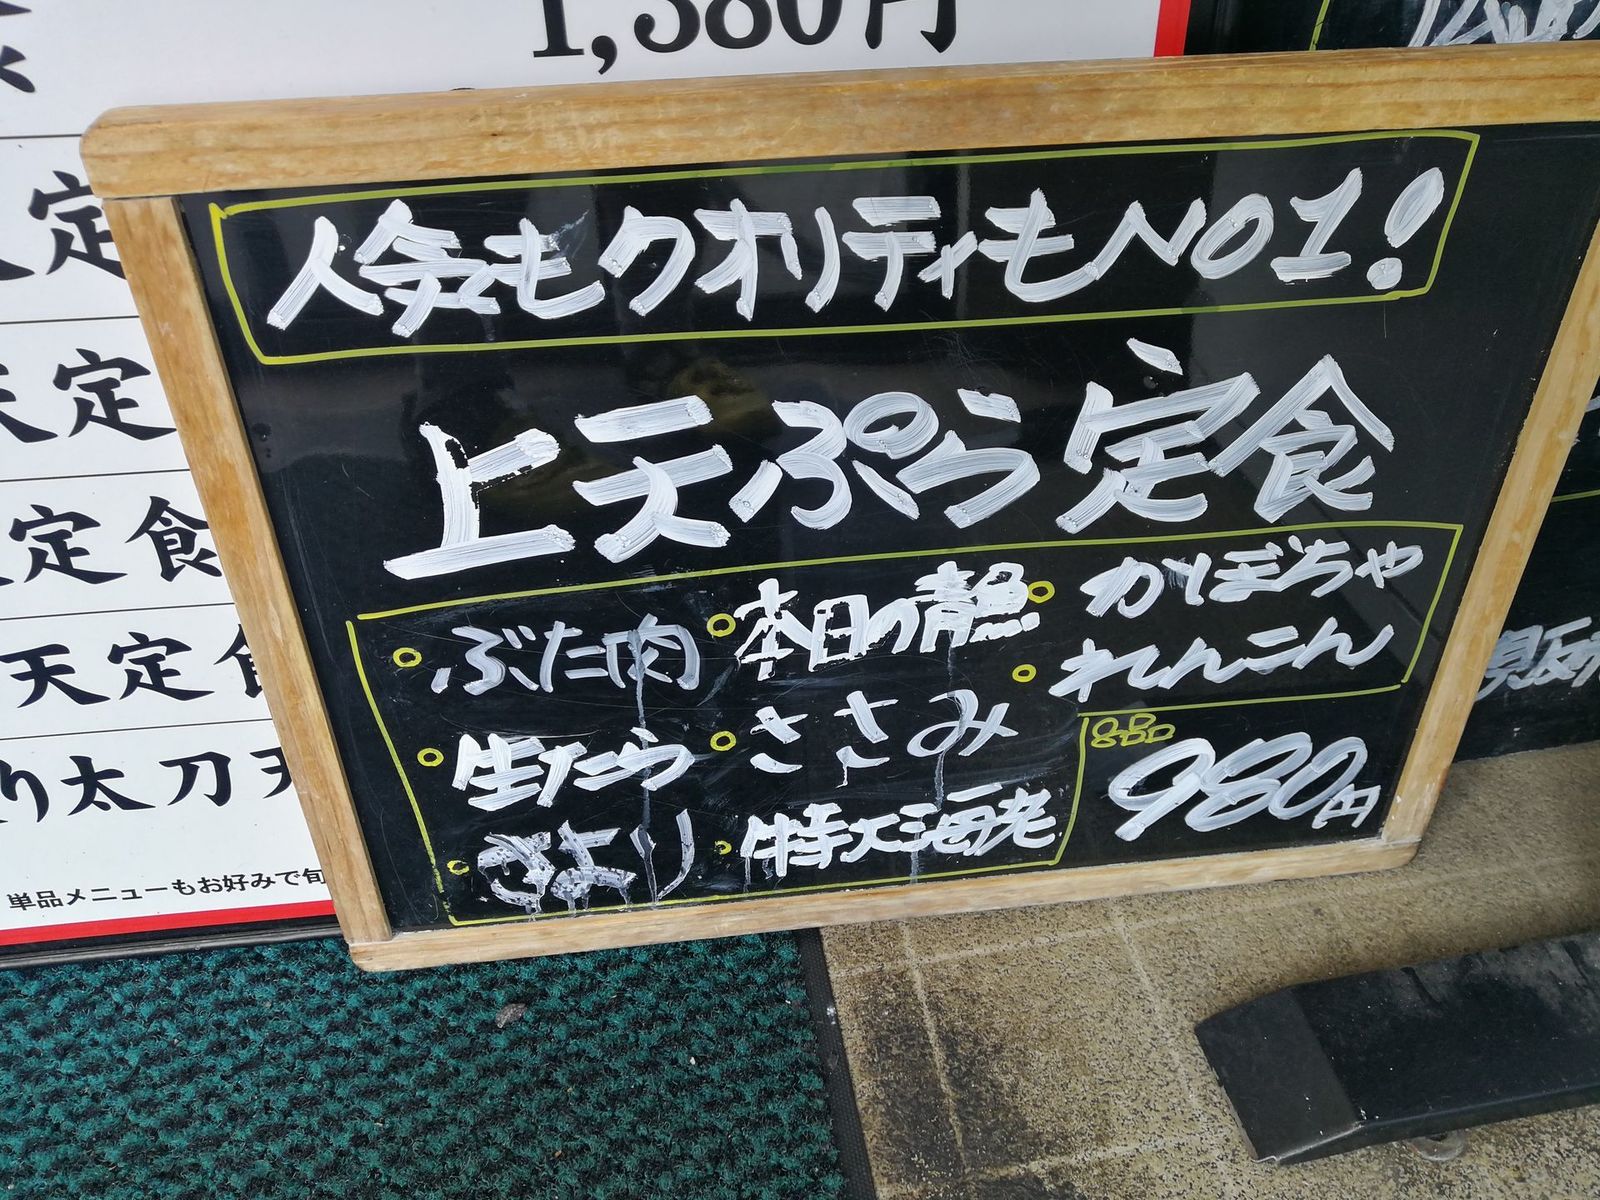 1,380円
定
天定
定食
天定食
り太刀天
単品メニューもお好みで旬
人気もクオリティもNO1!
上天ぷら定食
ぶた肉
生たら
さより
本日の青魚
ささみ
特大海老
かぼちゃ
れんこん
980円